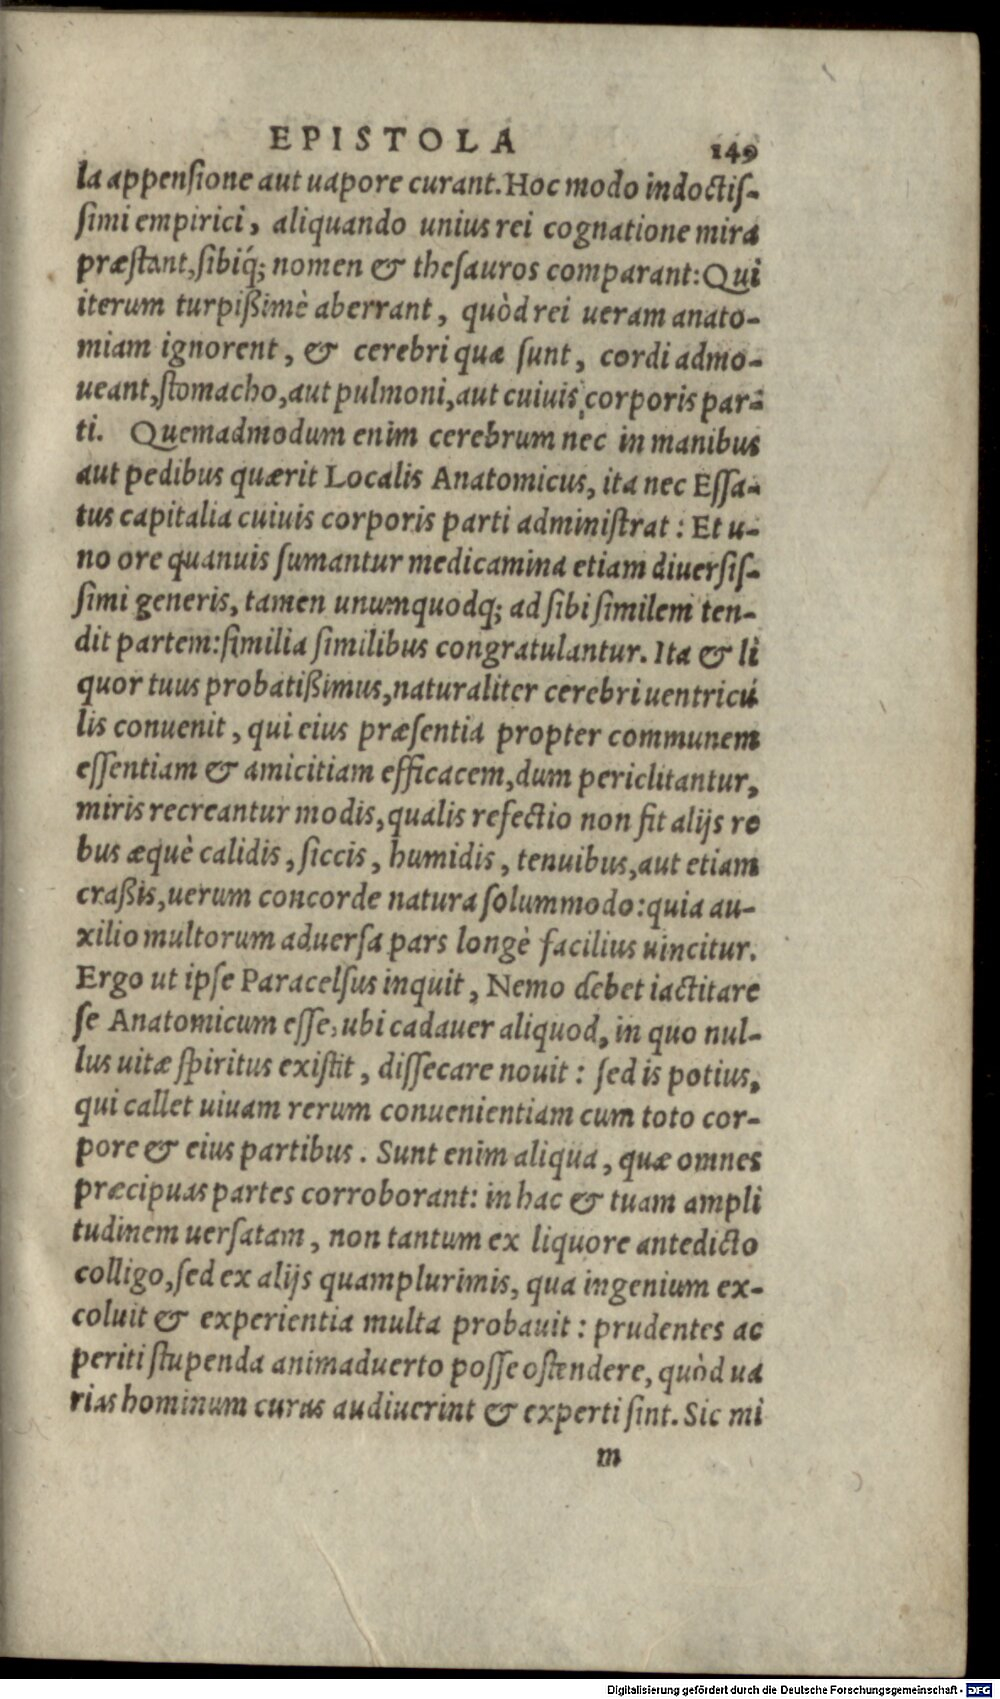 EPISTOLA 149
la appensione aut uapore curant. Hoc modo indoctis-
simi empirici, aliquando unius rei cognatione mira
præstant, sibiq́; nomen & thesauros comparant: Qui
iterum turpißimè aberrant, quòd rei ueram anato-
miam ignorent, & cerebri quæ sunt, cordi admo-
ueant, stomacho, aut pulmoni, aut cuiuis corporis par-
ti. Quemadmodum enim cerebrum nec in manibus
aut pedibus quærit Localis Anatomicus, ita nec Essa-
tus capitalia cuiuis corporis parti administrat: Et u-
no ore quanuis sumantur medicamina etiam diuersis-
simi generis, tamen unumquodq; ad sibi similem ten-
dit partem: similia similibus congratulantur. Ita & li
quor tuus probatißimus, naturaliter cerebri uentricu
lis conuenit, qui eius præsentia propter communem
essentiam & amicitiam efficacem, dum periclitantur,
miris recreantur modis, qualis refectio non fit alijs re
bus æquè calidis, siccis, humidis, tenuibus, aut etiam
craßis, uerum concorde natura solummodo: quia au-
xilio multorum aduersa pars longè facilius uincitur.
Ergo ut ipse Paracelsus inquit, Nemo debet iactitare
se Anatomicum esse, ubi cadauer aliquod, in quo nul-
lus uitæ spiritus existit, dissecare nouit: sed is potius,
qui callet uiuam rerum conuenientiam cum toto cor-
pore & eius partibus. Sunt enim aliqua, quæ omnes
præcipuas partes corroborant: in hac & tuam ampli
tudinem uersatam, non tantum ex liquore antedicto
colligo, sed ex alijs quamplurimis, qua ingenium ex-
coluit & experientia multa probauit: prudentes ac
periti stupenda animaduerto posse ostendere, quòd ua
rias hominum curas audiuerint & experti sint. Sic mi
m
Digitalisierung gefördert durch die Deutsche Forschungsgemeinschaft - DFG